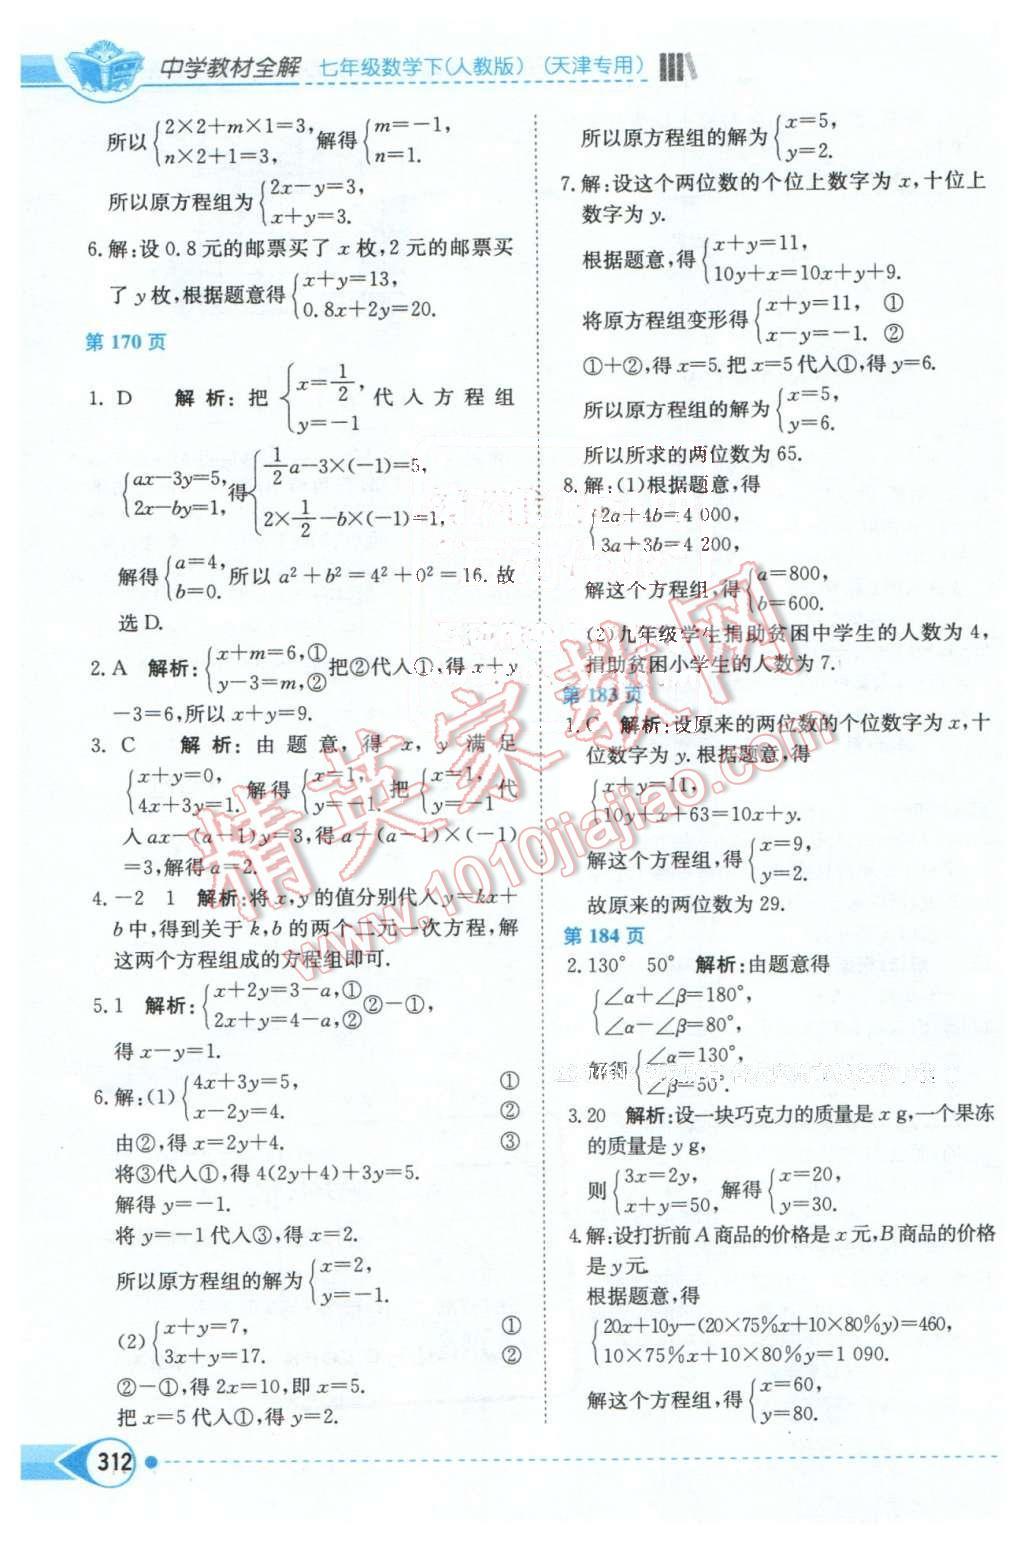 中学教材全解 七年级数学下(人教版)(天津专用)
所以{2×2+m×1=3, n×2+1=3, 解得{m=-1, n=1.
所以原方程组为{2x-y=3, x+y=3.
6.解:设0.8元的邮票买了x枚,2元的邮票买
了y枚,根据题意得{x+y=13, 0.8x+2y=20.
第170页
1. D 解析:把{x=1/2, y=-1 代入方程组
{ax-3y=5, 2x-by=1, 得{1/2a-3×(-1)=5, 2×1/2-b×(-1)=1,
解得{a=4, b=0. 所以a²+b²=4²+0²=16.故
选D.
2. A 解析:{x+m=6,① y-3=m,② 把②代入①,得x+y
-3=6,所以x+y=9.
3. C 解析:由题意,得x,y满足
{x+y=0, 4x+3y=1. 解得{x=1, y=-1. 把{x=1, y=-1 代
入ax-(a-1)y=3,得a+(a-1)×(-1)
=3,解得a=2.
4.-2 1 解析:将x,y的值分别代入y=kx+
b中,得到关于k,b的两个二元一次方程,解
这两个方程组成的方程组即可.
5.1 解析:{x+2y=3-a,① 2x+y=4-a,② ②-①,
得x-y=1.
6.解:(1){4x+3y=5, ① x-2y=4. ②
由②,得x=2y+4. ③
将③代入①,得4(2y+4)+3y=5.
解得y=-1.
将y=-1代入③,得x=2.
所以原方程组的解为{x=2, y=-1.
(2){x+y=7, ① 3x+y=17. ②
②-①,得2x=10,即x=5.
把x=5代入①,得y=2.
所以原方程组的解为{x=5, y=2.
7.解:设这个两位数的个位上数字为x,十位上
数字为y.
根据题意,得{x+y=11, 10y+x=10x+y+9.
将原方程组变形得{x+y=11, ① x-y=-1. ②
①+②,得x=5.把x=5代入①,得y=6.
所以原方程组的解为{x=5, y=6.
所以所求的两位数为65.
8.解:(1)根据题意,得
{2a+4b=4 000, 3a+3b=4 200,
解这个方程组,得{a=800, b=600.
(2)九年级学生捐助贫困中学生的人数为4,
捐助贫困小学生的人数为7.
第183页
1.C 解析:设原来的两位数的个位数字为x,十
位数字为y.根据题意,得
{x+y=11, 10y+x+63=10x+y.
解这个方程组,得{x=9, y=2.
故原来的两位数为29.
第184页
2.130° 50° 解析:由题意得
{∠α+∠β=180°, ∠α-∠β=80°,
解得{∠α=130°, ∠β=50°.
3.20 解析:设一块巧克力的质量是x g,一个果冻
的质量是y g,
则{3x=2y, x+y=50, 解得{x=20, y=30.
4.解:设打折前A商品的价格是x元,B商品的价格
是y元.
根据题意,得
{20x+10y-(20×75%x+10×80%y)=460, 10×75%x+10×80%y=1 090.
解这个方程组,得{x=60, y=80.
312
精英家教网
www.1010jiajiao.com